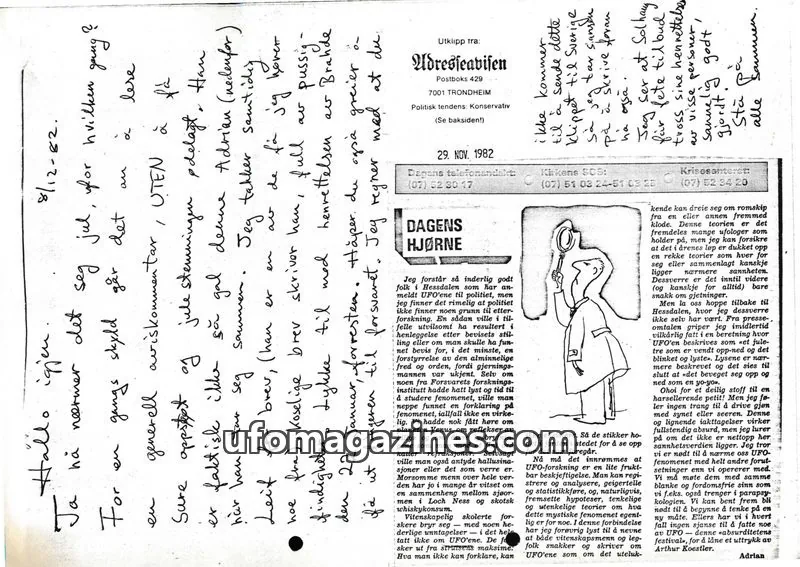 8/12-82.
Hallo igjen.
Ja nå nærmer det seg jul, for hvilken gang?
For en gangs skyld går det an å lese
en generell aviskommentar, UTEN å få
sure oppstøt og julestemningen ødelagt. Han
er faktisk ikke så gal denne Adrian (nedenfor)
når han tar seg sammen. Jeg takker samtidig
Leit brev, han er en av de få jeg hører
noe fra. Koselige brev skriver han, full av pussig-
findigheter. Lykke til med henrettelsen av Brahde
den 22. januar, forresten. Håper du også greier å
få ut rapporten til forsvaret. Jeg regner med at du
ikke kommer
til å sende dette
klippet til Sverige
så jeg tar sjansen
på å skrive foran
nå også.
Jeg ser at Solhaug
får fete tilbud
tross sine henrettelser
av visse personer,
sannelig godt
gjort!
Stå på
alle sammen.
Utklipp fra:
Adresseavisen
Postboks 429
7001 TRONDHEIM
Politisk tendens: Konservativ
(Se baksiden!)
29. NOV. 1982
Dagens telefonandakt:
(07) 52 30 17
Kirkens SOS:
(07) 51 03 24-51 03 25
Krisesenteret:
(07) 52 34 20
DAGENS
HJØRNE
Jeg forstår så inderlig godt
folk i Hessdalen som har an-
meldt UFO'ene til politiet, men
jeg finner det rimelig at politiet
ikke finner noen grunn til etter-
forskning. En sådan ville i til-
felle utvilsomt ha resultert i
henleggelse etter bevisets stil-
ling eller om man skulle ha fun-
net bevis for, i det minste, en
forstyrrelse av den alminnelige
fred og orden, fordi gjernings-
mannen var ukjent. Selv om
noen fra Forsvarets forsknings-
institutt hadde hatt lyst og tid til
å studere fenomenet, ville man
neppe funnet en forklaring på
fenomenet, iallfall ikke en virke-
lig. hadde nok fått høre om
ville man også ha antyde hallusina-
sjoner eller det som verre er.
Morsomme menn over hele ver-
den har jo i mange år vitset om
en sammenheng mellom sjøor-
men i Loch Ness og skotsk
whiskykonsum.
Vitenskapelig skolerte fors-
kere bryr seg — med noen he-
derlige unntagelser — i det hele
tatt ikke om UFO'ene. De
sker ut fra strutsens maksime:
Hva man ikke kan forklare, kan
Så de stikker ho-
redet for å se opp
Nå må det innrømmes at
UFO-forskning er en lite frukt-
bar beskjeftigelse. Man kan regi-
strere og analysere, geigertelle
og statistikkføre, og, naturligvis,
fremsette hypoteser, tenkelige
og utenkelige teorier om hva
dette mystiske fenomenet egent-
lig er for noe. I denne forbindelse
har jeg forøvrig lyst til å nevne
at både vitenskapsmenn og leg-
folk snakker og skriver om
UFO'ene som om det uteluk-
kende kan dreie seg om romskip
fra en eller annen fremmed
klode. Denne teorien er det
fremdeles mange ufologer som
holder på, men jeg kan forsikre
at det i årenes løp er dukket opp
en rekke teorier som hver for
seg eller sammenlagt kanskje
ligger nærmere sannheten.
Dessverre er det inntil videre
(og kanskje for alltid) bare
snakk om gjetninger.
Men la oss hoppe tilbake til
Hessdalen, hvor jeg dessverre
ikke selv har vært. Fra presse-
omtalen griper jeg imidlertid
vilkårlig fatt i en beretning hvor
UFO'en beskrives som «et jule-
tre som er vendt opp-ned og det
blinket og lyste». Lysene er nær-
mere beskrevet og det sies til
slutt at «det beveget seg opp og
ned som en yo-yo».
Ohoi for et deilig stoff til en
harselerende petit! Men jeg fø-
ler ingen trang til å drive gjøn
med synet eller seeren. Denne
og lignende iakttagelser virker
fullstendig absurd, men jeg lurer
på om det ikke er nettopp her
sannhetsverdien ligger. Jeg tror
vi er nødt til å nærme oss UFO-
fenomenet med helt andre forut-
setninger enn vi opererer med.
Vi må møte dem med samme
blanke og fordomsfrie sinn som
vi f.eks. også trenger i parapsy-
kologien. Vi kan bent frem bli
nødt til å begynne å tenke på en
ny måte. Ellers har vi i hvert
fall ingen sjanse til å fatte noe
av UFO — denne «absurditetens
festival», for å låne et uttrykk av
Arthur Koestler.
Adrian
ufomagazines.com